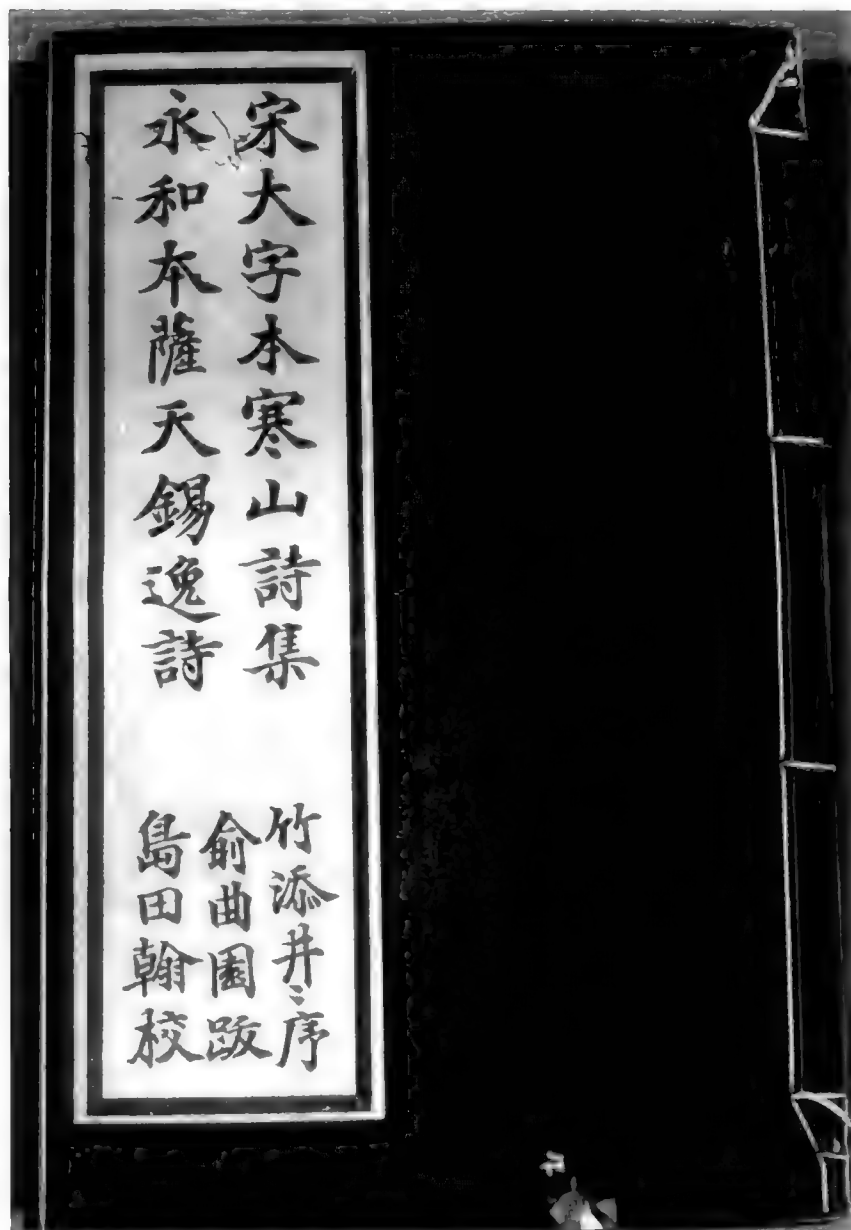 宋大字本寒山詩集
永和本薩天錫逸詩
竹添井〻序
俞曲園跋
島田翰校